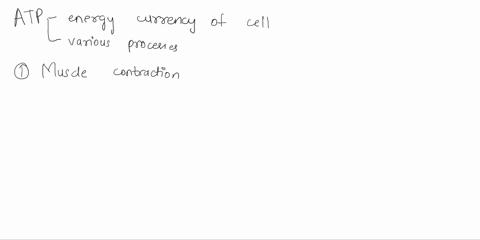 ATP energy currency of cell
various processes
① Muscle contraction